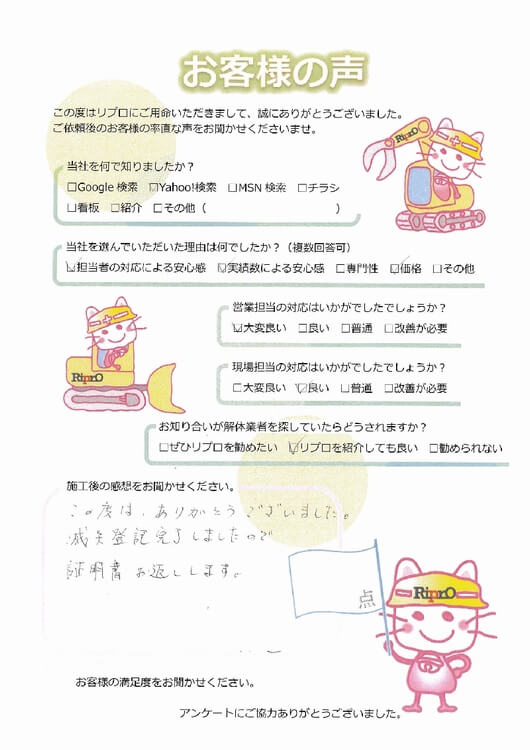 お客様の声
この度はリプロにご用命いただきまして、誠にありがとうございました。
ご依頼後のお客様の率直な声をお聞かせくださいませ。
RiprO
当社を何で知りましたか？
□Google 検索 ☑Yahoo!検索 □MSN 検索 □チラシ
□看板 □紹介 □その他（ ）
当社を選んでいただいた理由は何でしたか？（複数回答可）
☑担当者の対応による安心感 ☑実績数による安心感 □専門性 ☑価格 □その他
営業担当の対応はいかがでしたでしょうか？
☑大変良い □良い □普通 □改善が必要
RiprO
現場担当の対応はいかがでしたでしょうか？
□大変良い ☑良い □普通 □改善が必要
お知り合いが解体業者を探していたらどうされますか？
□ぜひリプロを勧めたい ☑リプロを紹介しても良い □勧められない
施工後の感想をお聞かせください。
この度は、ありがとうございました。
滅失登記完了しましたので
証明書お返しします。
点
RiprO
お客様の満足度をお聞かせください。
アンケートにご協力ありがとうございました。